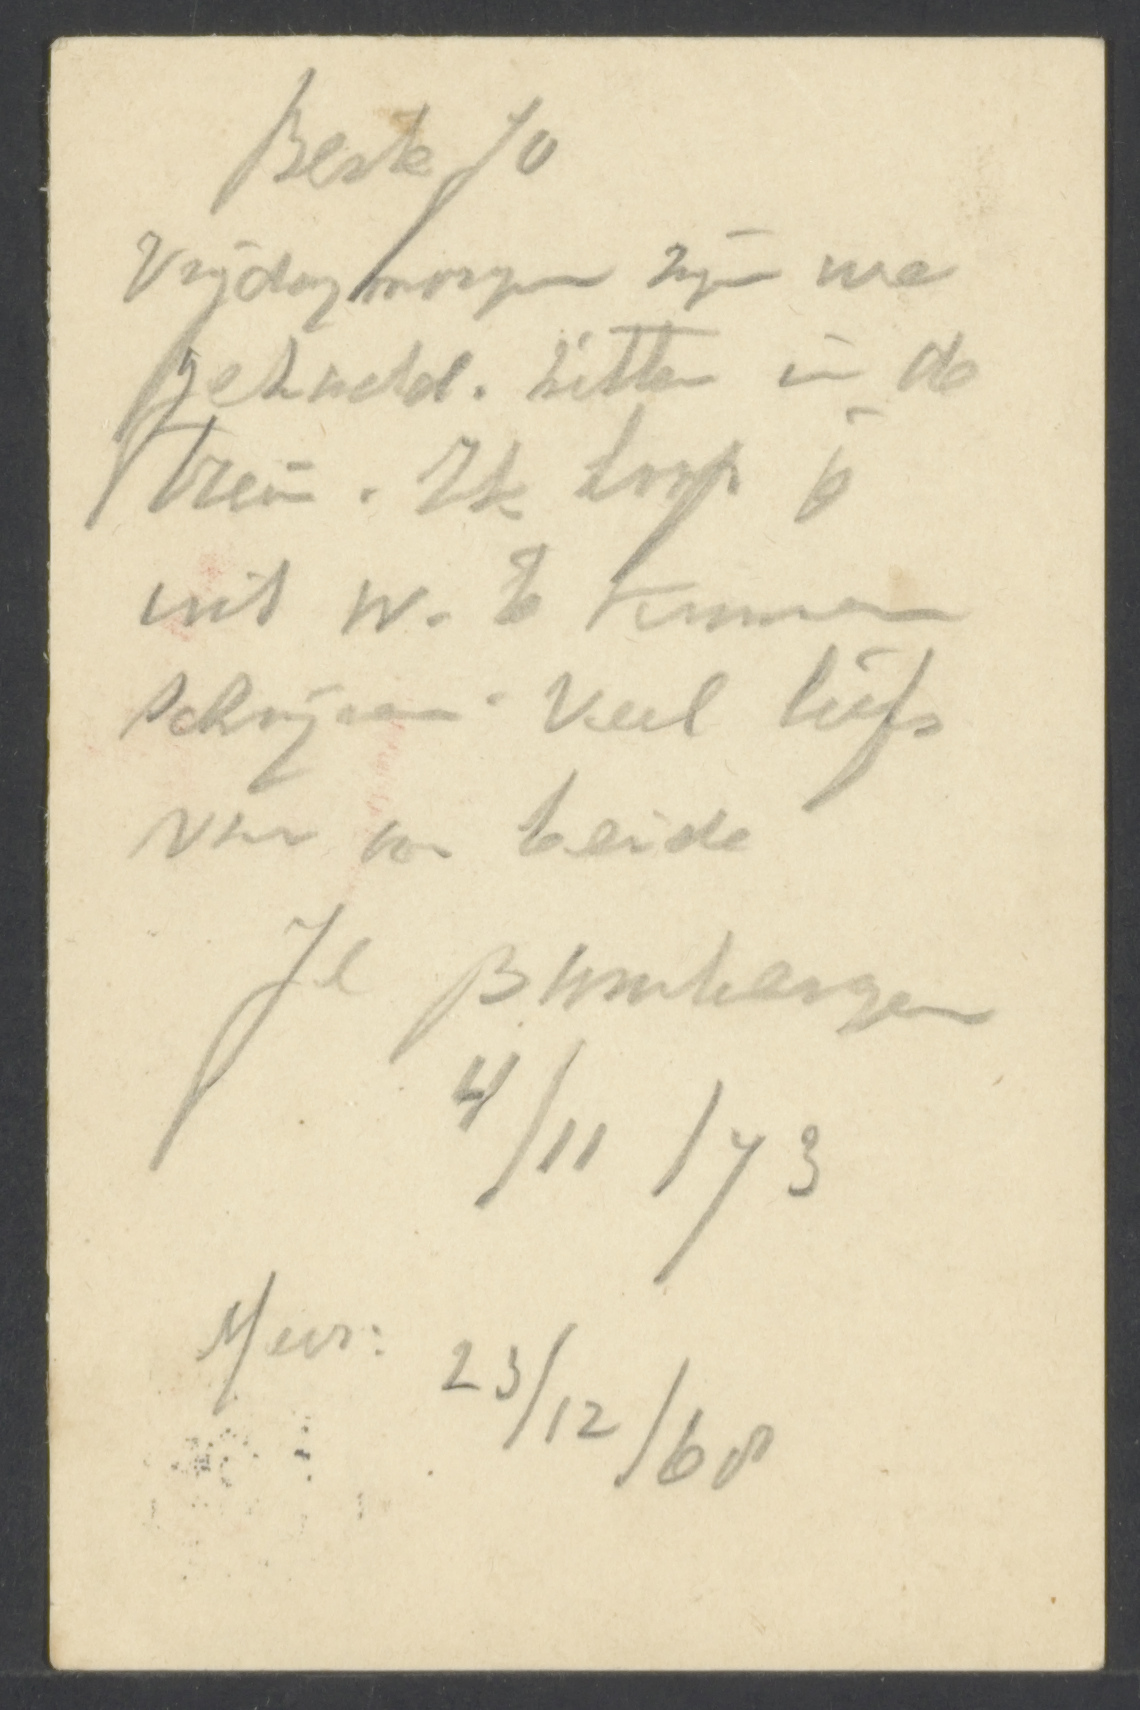 Beste Jo
Vrijdagmorgen zijn we
gehaald. Zitten in de
trein. Ik hoop je
uit W. te kunnen
schrijven. Veel liefs
van on beide
4/11/73
Mevr: 23/12/68